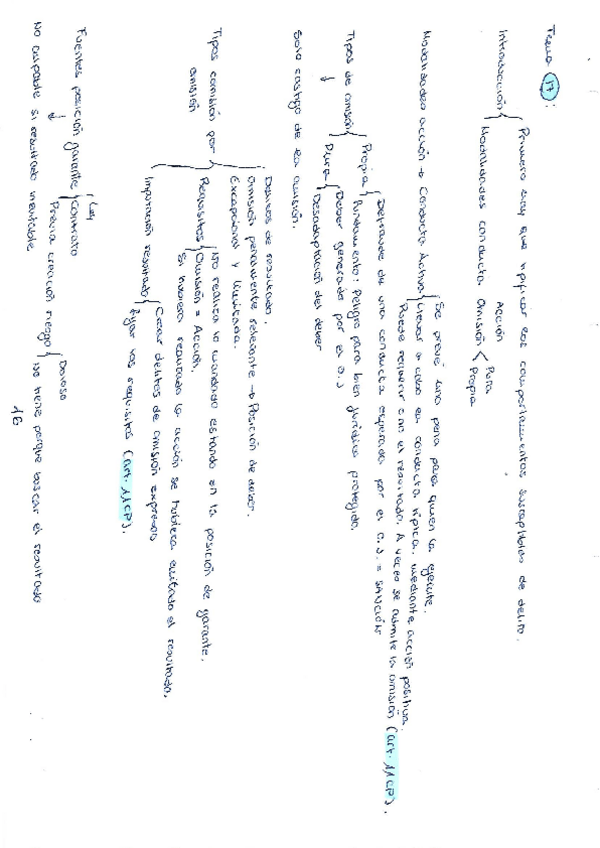 Tema 17:
Introducción { Primero hay que tipificar los comportamientos susceptibles de delito.
Modalidades conducta { Acción
Omisión < Pura
Propia
Modalidades acción → Conducta Activa { Se prevé una pena para quien la ejecute.
Llevar a cabo la conducta típica, mediante acción positiva.
Puede requerir o no el resultado. A veces se admite la omisión (art. 11 CP).
Tipos de omisión { Propia { Defraude de una conducta esperada por el O.J. = SANCIÓN
Fundamento: Peligro para bien jurídico protegido.
Pura { Deber generado por el O.J
Desadaptación del deber
↓
Solo castigo de la omisión.
Tipos comisión por omisión { Delitos de resultado.
Omisión penalmente relevante → Posición de deber.
Excepcional y limitada.
Requisitos { No realiza lo mandado estando en la posición de garante.
Omisión = Acción.
Si hubiera realizado la acción se hubiera evitado el resultado.
Imputación resultado { Crear delitos de omisión expresos
Fijar los requisitos (art. 11 CP).
Fuentes posición garante { Ley
Contrato
Previa creación riesgo { Doloso
No tiene porque buscar el resultado
↓
No culpable si resultado inevitable
16